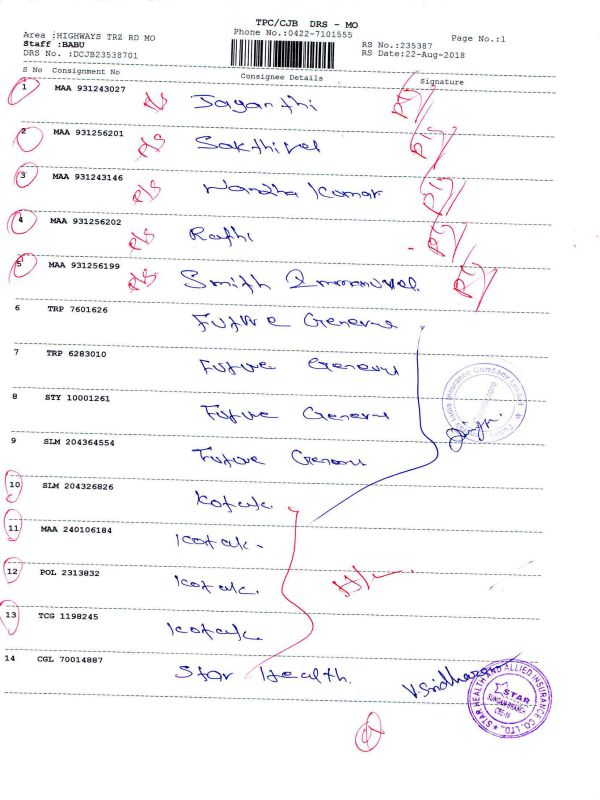 TPC/CJB DRS - MO
Area :HIGHWAYS TRZ RD MO
Phone No.:0422-7101555
Page No.:1
Staff :BABU
RS No.:235387
DRS No. :DCJB23538701
RS Date:22-Aug-2018
S No Consignment No Consignee Details Signature
1 MAA 931243027 Jayanthi
2 MAA 931256201 Sakthivel
3 MAA 931243146 Nandha Kumar
4 MAA 931256202 Rathi
5 MAA 931256199 Smith Immanuvel
6 TRP 7601626 Future General
7 TRP 6283010 Future General
8 STY 10001261 Future General
9 SLM 204364554 Future General
10 SLM 204326826 Kotak.
11 MAA 240106184 Kotak -
12 POL 2313832 Kotak.
13 TCG 1198245 Kotak.
14 CGL 70014887 Star Health.
India Insurance Company Limited
STAR HEALTH AND ALLIED INSURANCE CO. LTD.
STAR